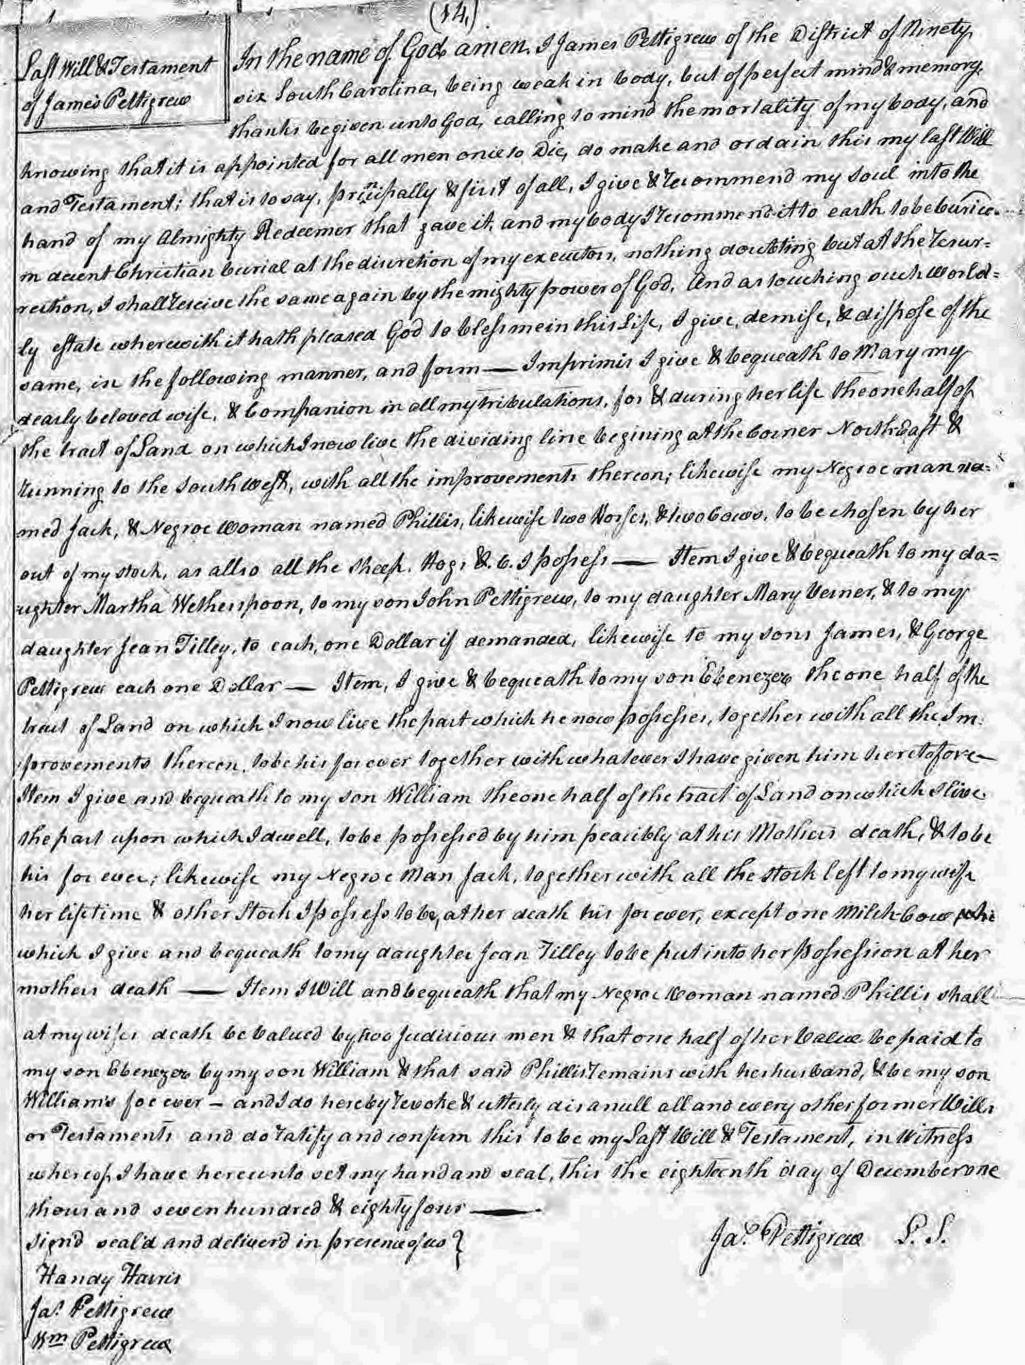 (14)
Last Will & Testament
of James Pettigrew
In the name of God amen, I James Pettigrew of the District of Ninety
six South Carolina, being weak in body, but of perfect mind & memory,
thanks be given unto God, calling to mind the mortality of my body, and
knowing that it is appointed for all men once to Die, do make and ordain this my last Will
and Testament; that is to say, principally & first of all, I give & recommend my soul into the
hand of my Almighty Redeemer that gave it, and my body I recommend it to earth to be buried
in decent Christian burial at the discretion of my executors, nothing doubting but at the resur=
rection, I shall receive the same again by the mighty power of God, And as touching such world=
ly estate wherewith it hath pleased God to bless me in this Life, I give, demise, & dispose of the
same, in the following manner, and form — Imprimis I give & bequeath to Mary my
dearly beloved wife, & Companion in all my tribulations, for & during her life the one half of
the tract of Land on which I now live the dividing line begining at the Corner North East &
running to the South West, with all the improvements thereon; likewise my Negroe man na=
med Jack, & Negroe Woman named Phillis, likewise two Horses, & two Cows, to be chosen by her
out of my stock, as allso all the sheep, Hogs & C. I possess — Item I give & bequeath to my da=
ughter Martha Wetherspoon, to my son John Pettigrew, to my daughter Mary Verner, & to my
daughter Jean Tilley, to each, one Dollar if demanded, likewise to my sons James, & George
Pettigrew each one Dollar — Item, I give & bequeath to my son Ebenezer the one half of the
tract of Land on which I now live the part which he now possesses, together with all the Im-
provements thereon, to be his for ever together with whatever I have given him heretofore —
Item I give and bequeath to my son William the one half of the tract of Land on which I live
the part upon which I dwell, to be possessed by him peacibly at his Mothers death, & to be
his for ever; likewise my Negroe Man Jack, together with all the stock left to my wife
her lifetime & other Stock I possess to be, at her death his for ever, except one Milch Cow
which I give and bequeath to my daughter Jean Tilley to be put into her possession at her
mothers death — Item I Will and bequeath that my Negroe Woman named Phillis shall
at my wifes death be Valued by two Judicious men & that one half of her Value be paid to
my son Ebenezer by my son William & that said Phillis remains with her husband, & be my son
William's for ever — and I do hereby revoke & utterly disanull all and every other former Wills
or Testaments and do ratify and confirm this to be my Last Will & Testament, in Witness
whereof I have hereunto set my hand and seal, this the eighteenth day of December one
thousand seven hundred & eighty four —
signd seal'd and deliverd in presence of us }
Jas. Pettigrew L. S.
Handy Harris
Jas. Pettigrew
Wm Pettigrew